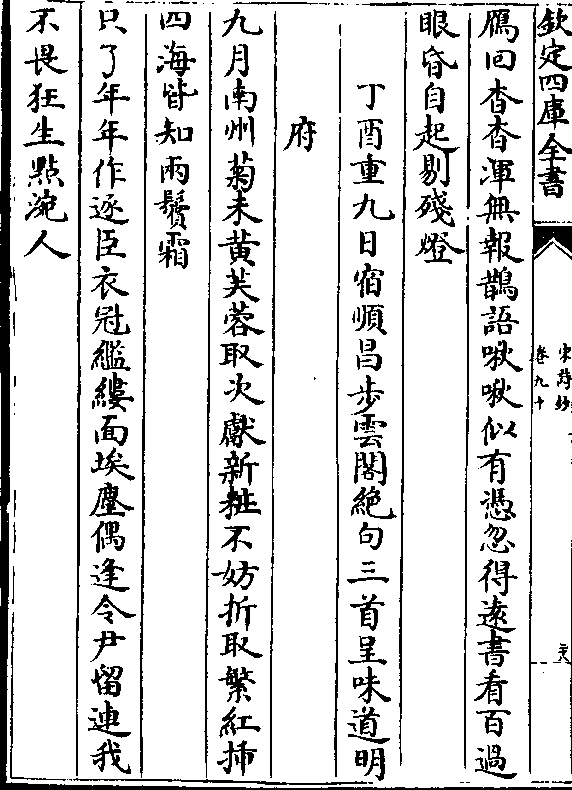 欽定四庫全書
宋詩鈔
卷九十
雁回杳杳渾無報鵲語啾啾似有憑忽得遠書看百過
眼昏自起剔殘燈
丁酉重九日宿順昌步雲閣絶句三首呈味道明
府
九月南州菊未黄芙蓉取次獻新粧不妨折取繁紅揷
四海皆知兩鬢霜
只了年年作逐臣衣冠繿縷面埃塵偶逢令尹留連我
不畏狂生㸃涴人